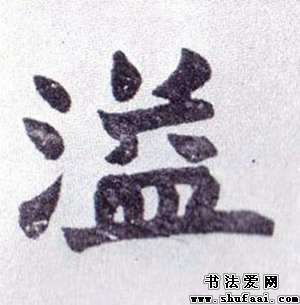 溢
书法爱网
www.shufaai.com